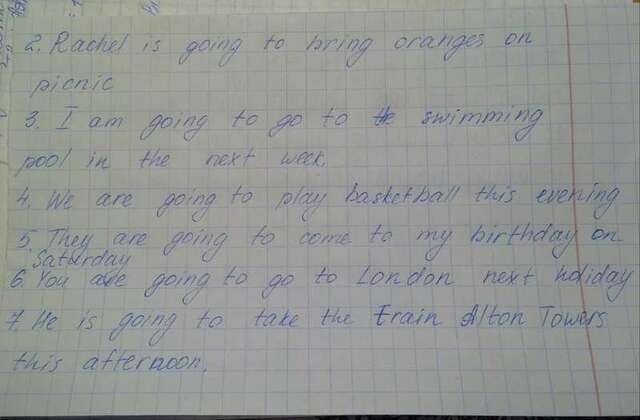 2. Rachel is going to bring oranges on
picnic
3. I am going to go to the swimming
pool in the next week.
4. We are going to play basketball this evening
5. They are going to come to my birthday on
Saturday
6. You are going to go to London next holiday
7. He is going to take the train Alton Towers
this afternoon.